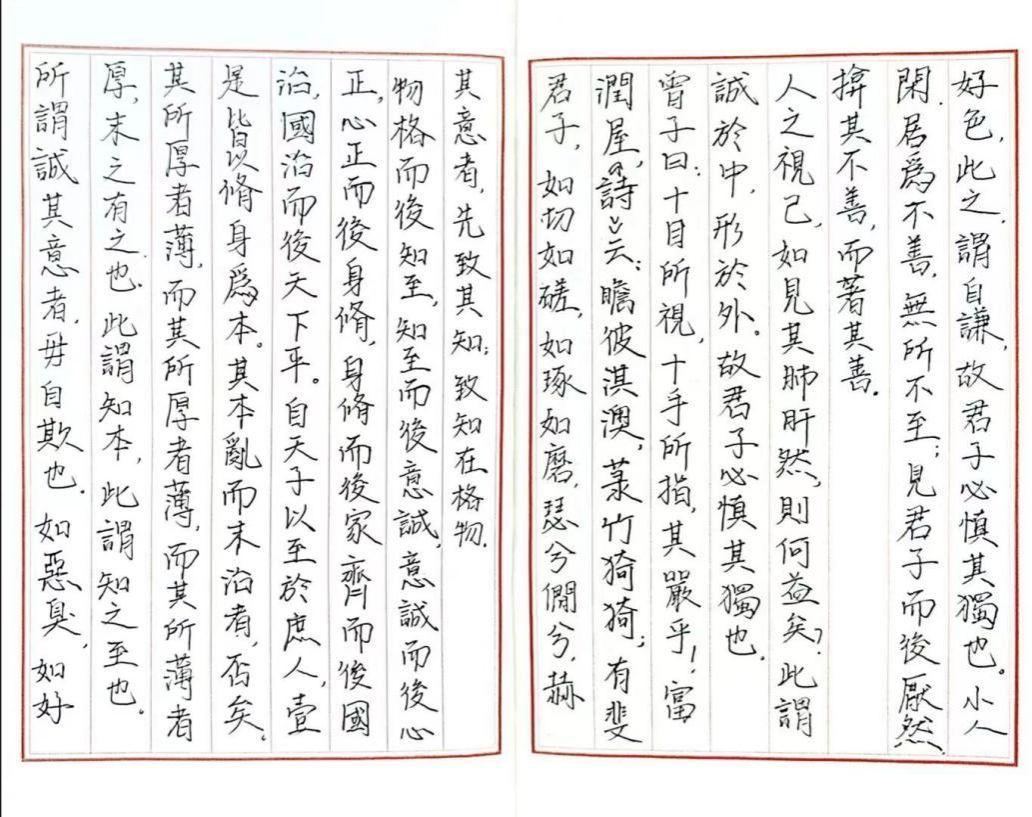 其意者，先致其知；致知在格物.
物格而後知至，知至而後意誠，意誠而後心
正，心正而後身脩，身脩而後家齊而後國
治，國治而後天下平。自天子以至於庶人，壹
是皆以脩身爲本。其本亂而末治者，否矣。
其所厚者薄，而其所厚者薄，而其所薄者
厚，未之有之也.此謂知本，此謂知之至也。
所謂誠其意者，毋自欺也.如惡臭，如好
好色，此之.謂自謙，故君子必慎其獨也。小人
閑.居爲不善，無所不至；見君子而後厭然.
揜其不善，而著其善.
人之視己，如見其肺肝然，則何益矣？此謂
誠於中，形於外。故君子必慎其獨也.
曾子曰：十目所視，十手所指，其嚴乎！富
潤屋，詩云：瞻彼淇澳，菉竹猗猗；有斐
君子，如切如磋，如琢如磨.瑟兮僩兮，赫